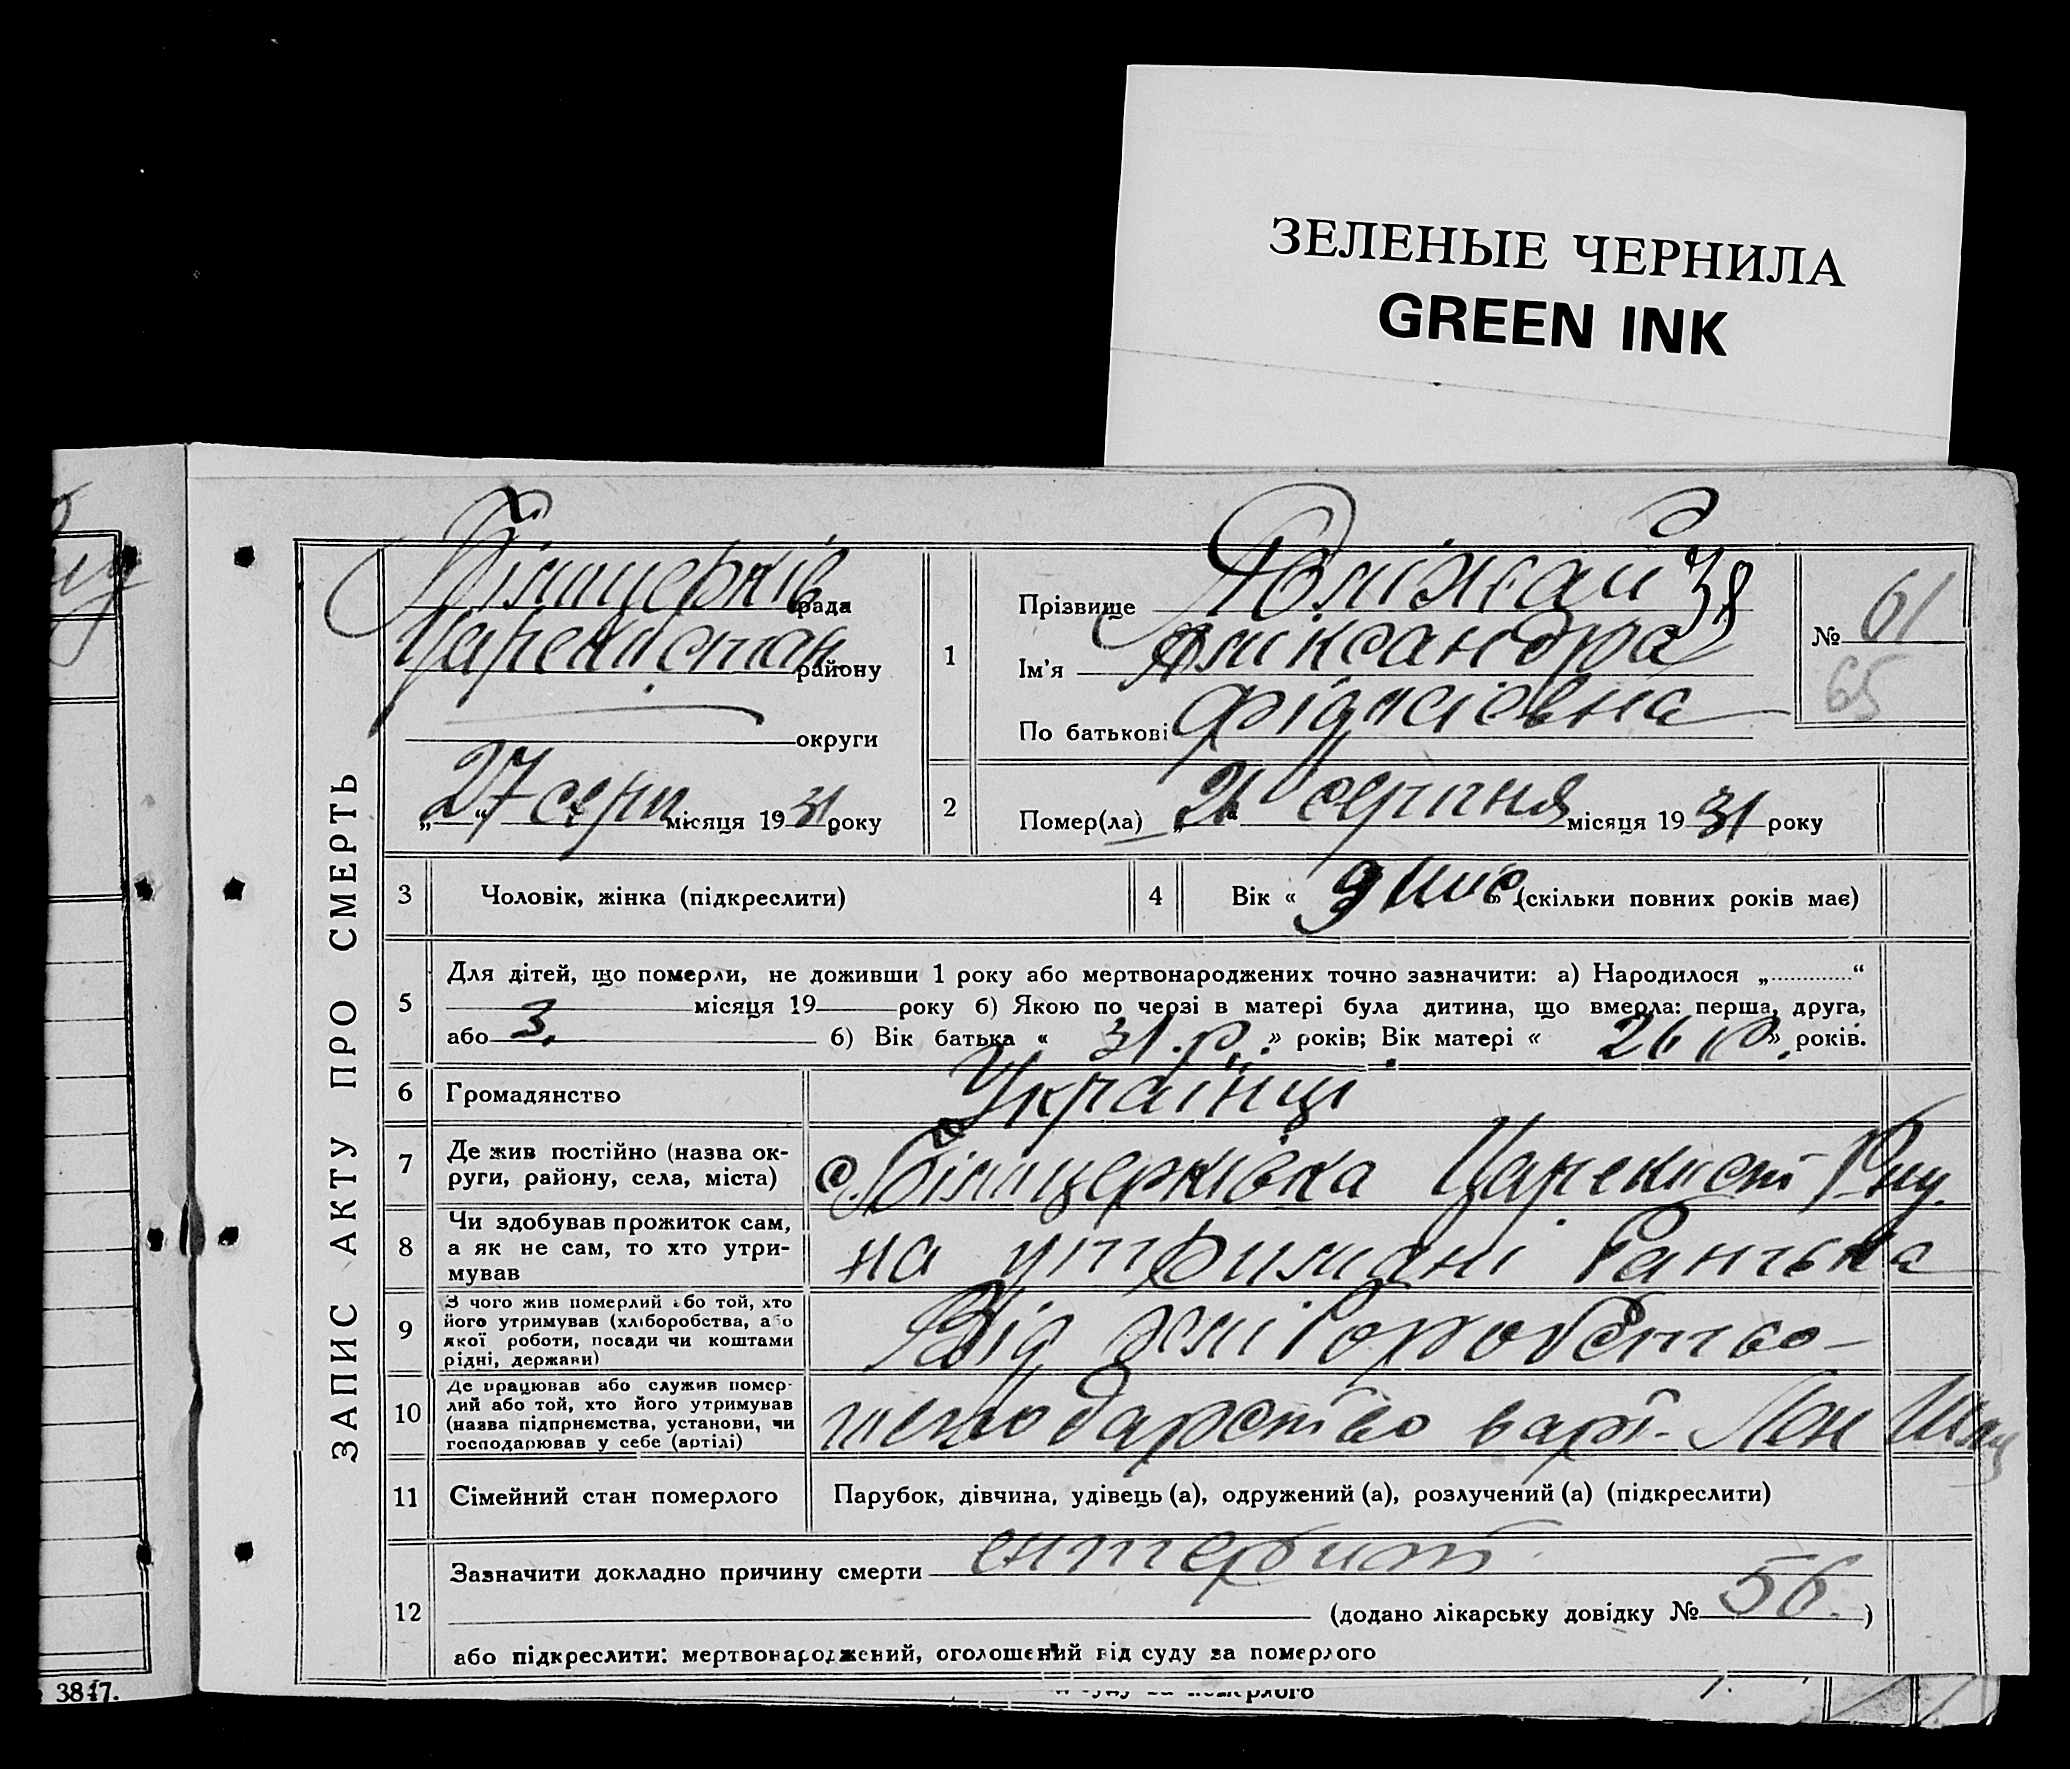 ЗЕЛЕНЫЕ ЧЕРНИЛА
GREEN INK
ЗАПИС АКТУ ПРО СМЕРТЬ
Білицерків рада
Царекист районy
округи
„27“ серп місяця 1931 року
1
Прізвище 38
Ім'я Аліксандра
По батькові
№ 61
65
2
Помер(ла) „21“ серпня місяця 1931 року
3
Чоловік, жінка (підкреслити)
4
Вік « 9 міс » (скільки повних років має)
5
Для дітей, що померли, не доживши 1 року або мертвонароджених точно зазначити: а) Народилося „ “
місяця 19 року б) Якою по черзі в матері була дитина, що вмерла: перша, друга,
або 3. б) Вік батька « 31.р. » років; Вік матері « 26 р. » років.
6
Громадянство
Українці
7
Де жив постійно (назва ок-
руги, району, села, міста)
с. Білицерківка Царекист Р-ну.
8
Чи здобував прожиток сам,
а як не сам, то хто утри-
мував
на утримані батька
9
З чого жив померлий або той, хто
його утримував (хліборобства, або
якої роботи, посади чи коштами
рідні, держави)
Від хліборобство
10
Де працював або служив помер-
лий або той, хто його утримував
(назва підприємства, установи, чи
господарював у себе (артілі)
11
Сімейний стан померлого
Парубок, дівчина, удівець (а), одружений (а), розлучений (а) (підкреслити)
12
Зазначити докладно причину смерти ентерит
(додано лікарську довідку № 56.)
або підкреслити: мертвонароджений, оголошений від суду за померлого
3847.